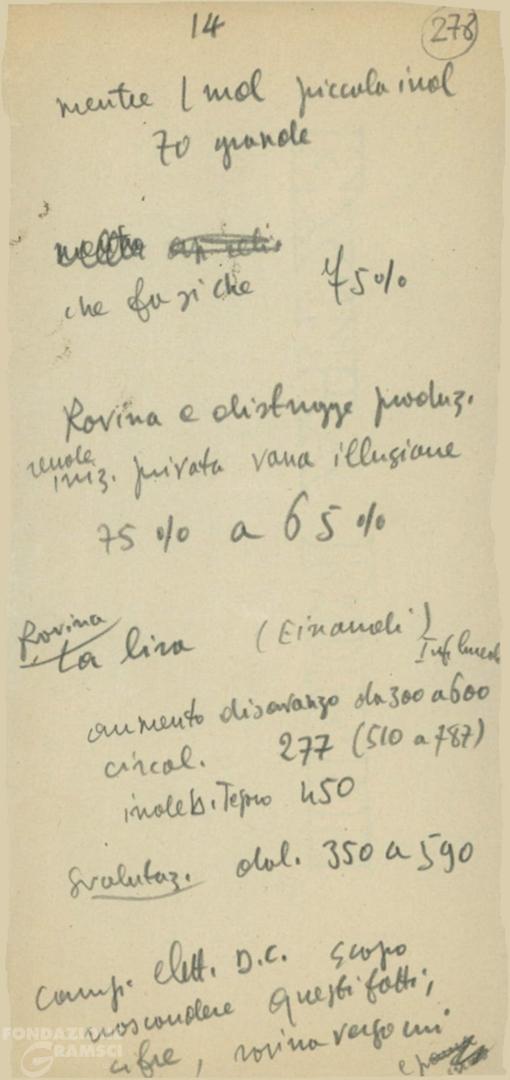 14
278
mentre 1 mol piccola ind
70 grande
che fasiche 75%
Rovina e distrugge produz.
rende
iniz. privata vana illusione
75% a 65%
Rovina
la lira (Einaudi)
aumento disavanzo da 300 a 600
circol. 277 (510 a 787)
indeb. Tesoro 450
Svalutaz. dol. 350 a 590
camp. elett. D.C. scopo
nascondere questi fatti,
cifre, rovina vergogni
e
FONDAZIONE
GRAMSCI